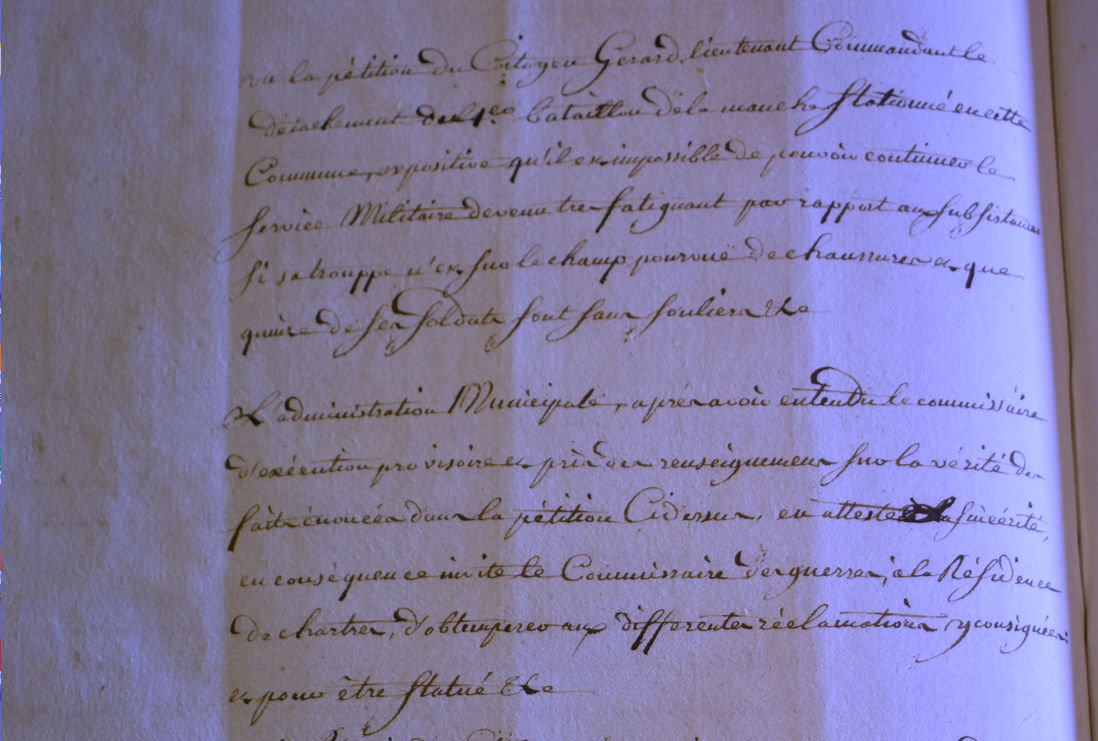 vu la pétition du Citoyen Gerard, lieutenant Commandant le
détachement du 1.er bataillon de la manche stationné en cette
Commune, expositive qu'il est impossible de pouvoir continuer le
service Militaire devenu tres fatiguant par rapport aux subsistances
si sa trouppe n'est sur le champ pourvuë de chaussures et que
quinze de ses soldats sont sans souliers &c
L'administration Municipale, après avoir entendu le commissaire
d'exécution provisoire et pris des renseignemens sur la vérité des
faits énoncés dans la pétition Cidessus, en atteste la sincérité,
en conséquence invite le Commissaire des guerres, à la Résidence
de chartres, d'obtemperer aux differentes réclamations y consignées
et pour être statué &c